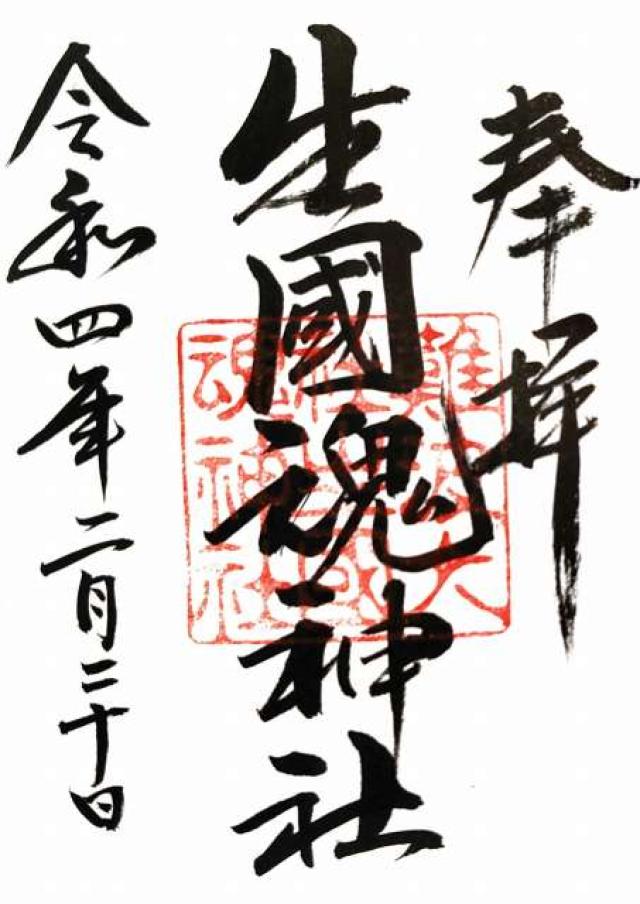 奉拝
生國魂神社
令和四年二月二十日